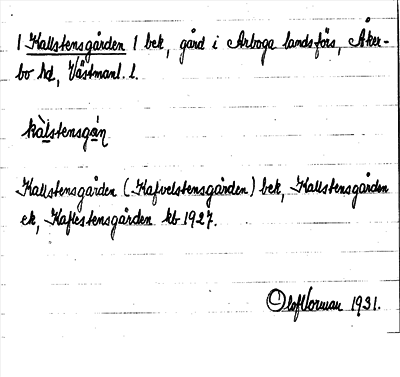 1 Kallstensgården 1 bek, gård i Arboga landsförs, Åker-
bo hd, Västmanl. l.
kàlstensgán
Kallstensgården (Kafvelstensgården) bek, Kallstensgården
ek, Kaflestensgården kb 1927.
Olof Norman 1931.